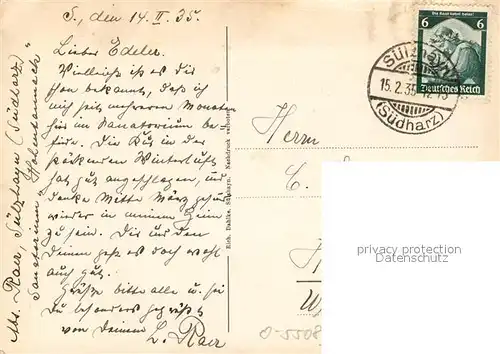 S., den 14. II. 35.
Lieber Edeler.
Vielleicht ist es dir
schon bekannt, daß ich
mich seit mehreren Monaten
hier im Sanatorium be-
finde. Die Kur in der
Winterluft
hat gut angeschlagen, und
denke Mitte März gesund
wieder in meinem Heim
zu sein. Dir und den
Deinen geht es doch wohl
auch gut.
Grüße bitte alle u. sei
Du besonders gegrüßt
von Deinem
Abs. Sülzhayn (Südharz)
Sanatorium "Hohentanneck"
Rich. Dahlke, Sülzhayn. Nachdruck verboten.
Die Saar kehrt heim!
6 6
Deutsches Reich
Sülzhayn
15.2.35.
(Südharz)
Herrn
C.
privacy protection
www.oldthing.com
0-5508